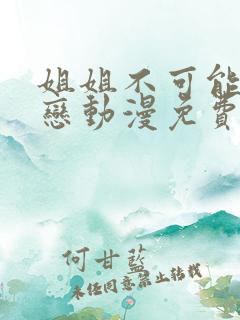 姐姐不可能
戀動漫免費
何甘藍
未經同意禁止轉載